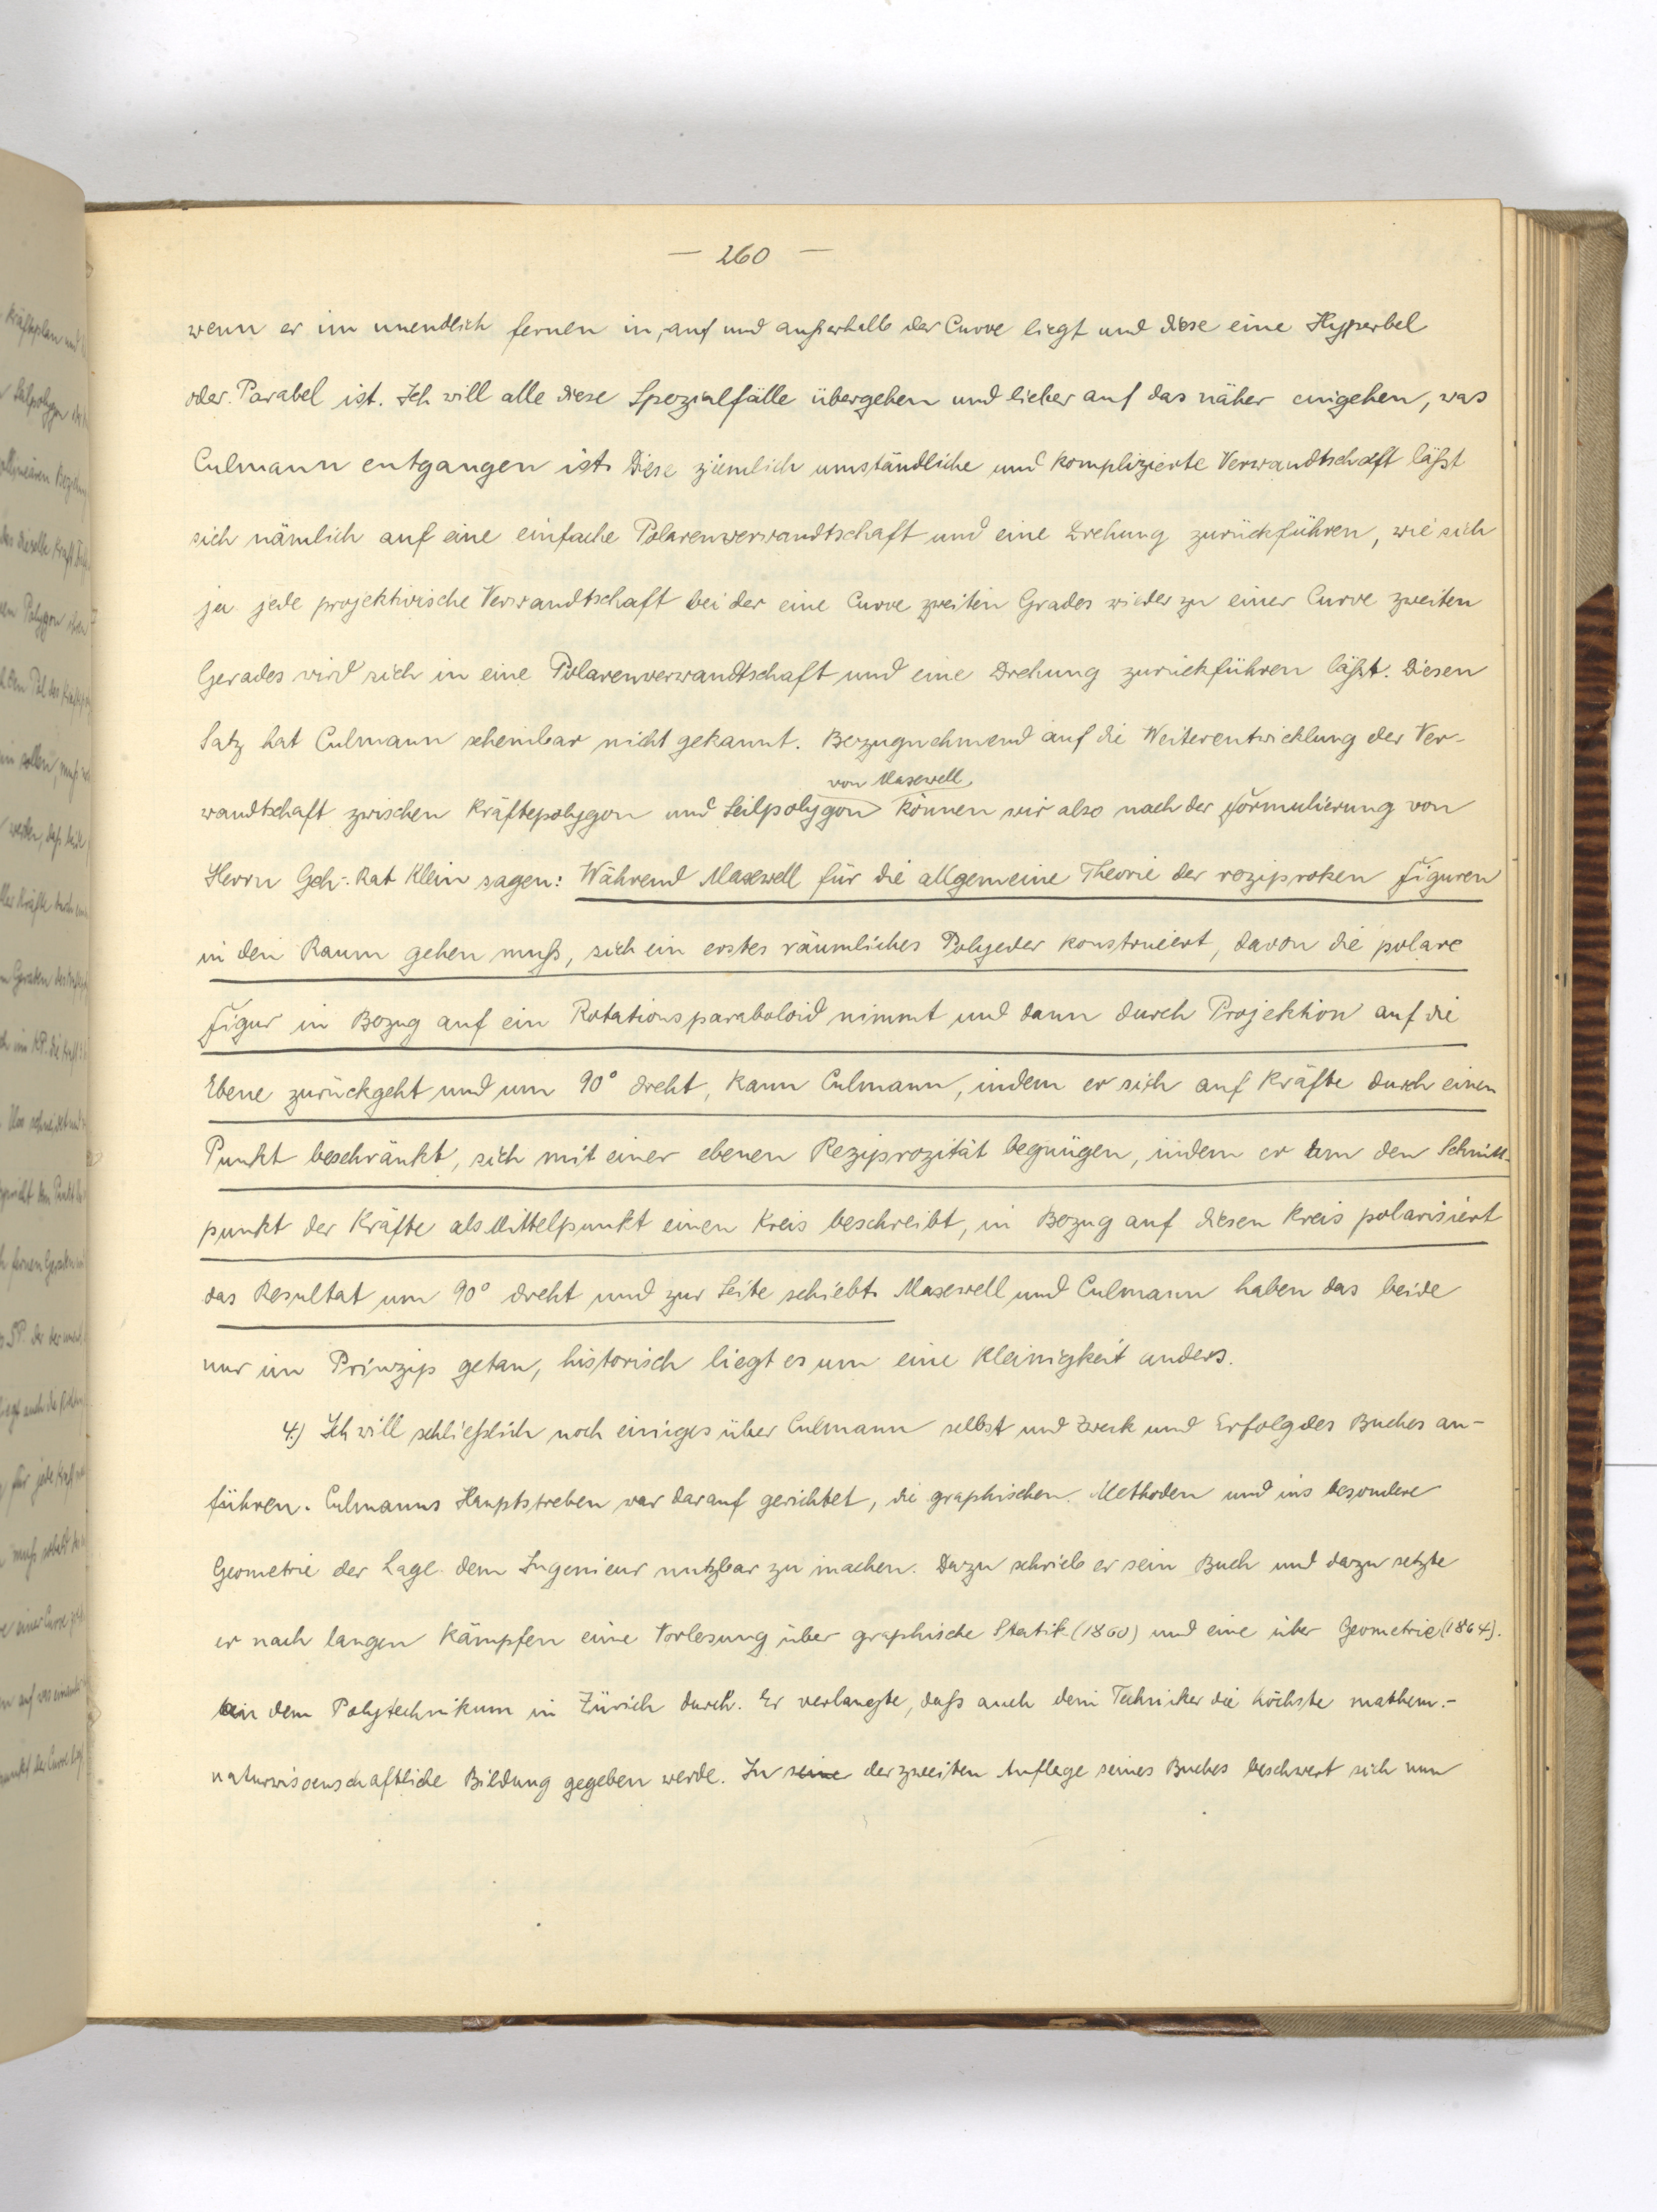 — 260 —
wenn er im unendlich fernen in, auf und außerhalb der Curve liegt und diese eine Hyperbel
oder Parabel ist. Ich will alle diese Spezialfälle übergehen und lieber auf das näher eingehen, was
Culmann entgangen ist. Diese ziemlich umständliche und komplizierte Verwandtschaft läßt
sich nämlich auf eine einfache Polarenverwandtschaft und eine Drehung zurückführen, wie sich
ja jede projektivische Verwandtschaft bei der eine Curve zweiten Grades wieder zu einer Curve zweiten
Gerades wird sich in eine Polarenverwandtschaft und eine Drehung zurückführen läßt. Diesen
Satz hat Culmann scheinbar nicht gekannt. Bezugnehmend auf die Weiterentwicklung der Ver-
von Maxwell
wandtschaft zwischen Kräftepolygon und Seilpolygon können wir also nach der Formulierung von
Herrn Geh. Rat Klein sagen: Während Maxwell für die allgemeine Theorie der reziproken Figuren
in den Raum gehen muß, sich ein erstes räumliches Polyeder konstruiert, davon die polare
Figur in Bezug auf ein Rotationsparaboloid nimmt und dann durch Projektion auf die
Ebene zurückgeht und um 90° dreht, kann Culmann, indem er sich auf Kräfte durch einen
Punkt beschränkt, sich mit einer ebenen Reziprozität begnügen, indem er um den Schnitt-
punkt der Kräfte als Mittelpunkt einen Kreis beschreibt, in Bezug auf diesen Kreis polarisiert
das Resultat um 90° dreht und zur Seite schiebt. Maxwell und Culmann haben das beide
nur im Prinzip getan, historisch liegt es um eine Kleinigkeit anders.
4.) Ich will schließlich noch einiges über Culmann selbst und Zweck und Erfolg des Buches an-
führen. Culmanns Hauptstreben war darauf gerichtet, die graphischen Methoden und ins besondere
Geometrie der Lage dem Ingenieur nutzbar zu machen. Dazu schrieb er sein Buch und dazu setzte
er nach langen Kämpfen eine Vorlesung über graphische Statik (1860) und eine über Geometrie (1864).
an dem Polytechnikum in Zürich durch. Er verlangte, daß auch dem Techniker die höchste mathem.-
naturwissenschaftliche Bildung gegeben werde. In seine der zweiten Auflage seines Buches beschwert sich nun